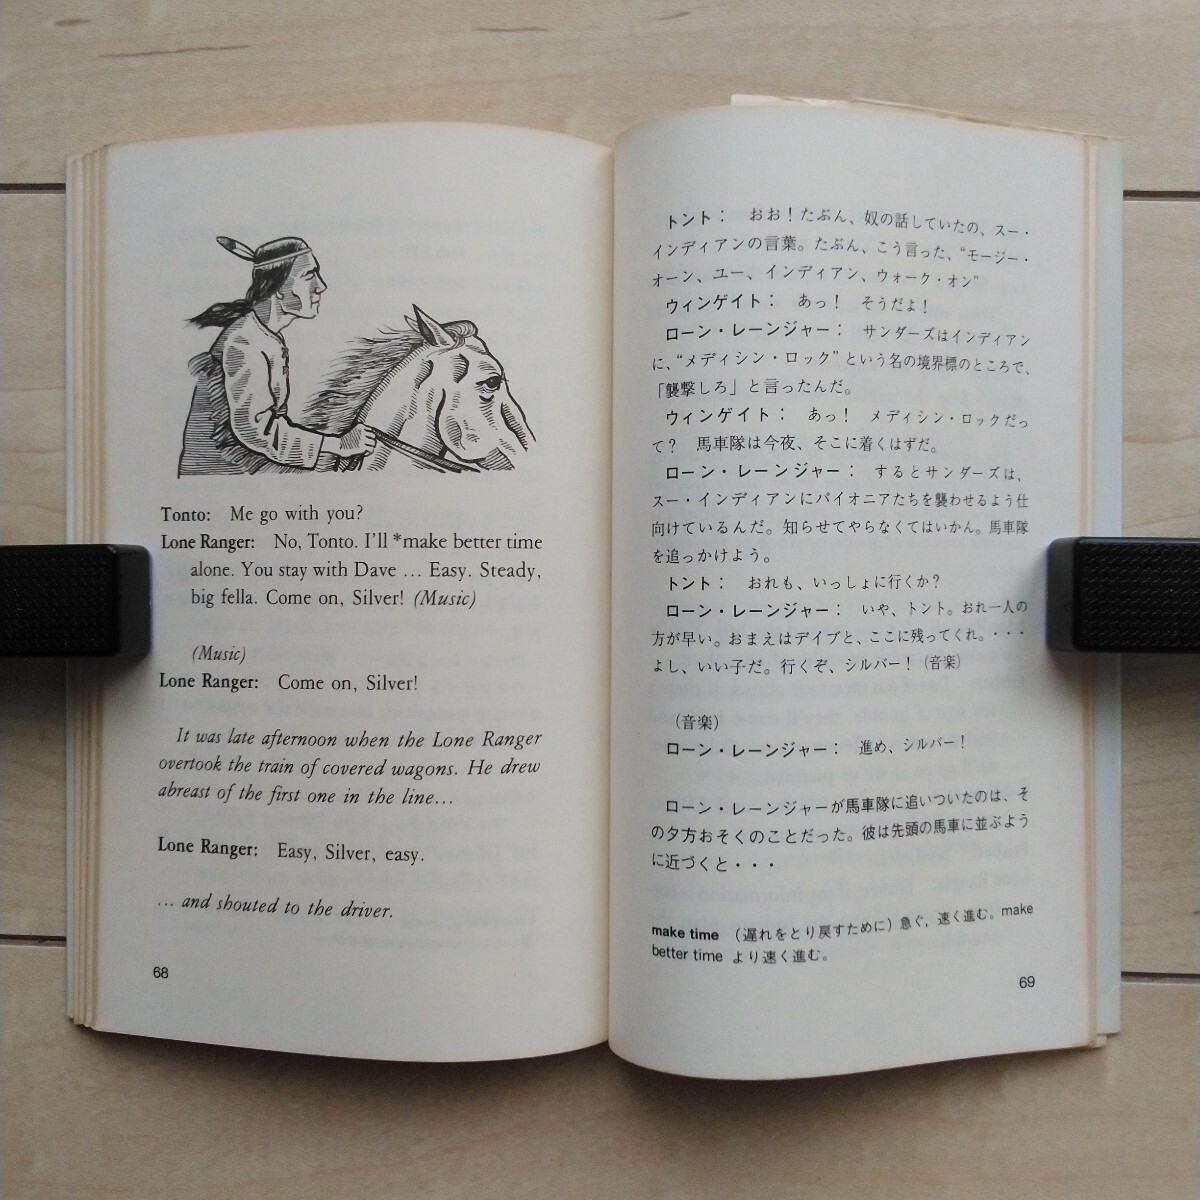 Tonto: Me go with you?
Lone Ranger: No, Tonto. I'll *make better time
alone. You stay with Dave ... Easy. Steady,
big fella. Come on, Silver! (Music)
(Music)
Lone Ranger: Come on, Silver!
It was late afternoon when the Lone Ranger
overtook the train of covered wagons. He drew
abreast of the first one in the line...
Lone Ranger: Easy, Silver, easy.
... and shouted to the driver.
68
トント： おお！たぶん、奴の話していたの、スー・
インディアンの言葉。たぶん、こう言った、“モージー・
オーン、ユー、インディアン、ウォーク・オン”
ウィンゲイト： あっ！ そうだよ！
ローン・レーンジャー： サンダーズはインディアン
に、“メディシン・ロック”という名の境界標のところで、
「襲撃しろ」と言ったんだ。
ウィンゲイト： あっ！ メディシン・ロックだっ
て？ 馬車隊は今夜、そこに着くはずだ。
ローン・レーンジャー： するとサンダーズは、
スー・インディアンにパイオニアたちを襲わせるよう仕
向けているんだ。知らせてやらなくてはいかん。馬車隊
を追っかけよう。
トント： おれも、いっしょに行くか？
ローン・レーンジャー： いや、トント。おれ一人の
方が早い。おまえはデイブと、ここに残ってくれ。・・・
よし、いい子だ。行くぞ、シルバー！（音楽）
（音楽）
ローン・レーンジャー： 進め、シルバー！
ローン・レーンジャーが馬車隊に追いついたのは、そ
の夕方おそくのことだった。彼は先頭の馬車に並ぶよう
に近づくと・・・
make time （遅れをとり戻すために）急ぐ，速く進む。make
better time より速く進む。
69